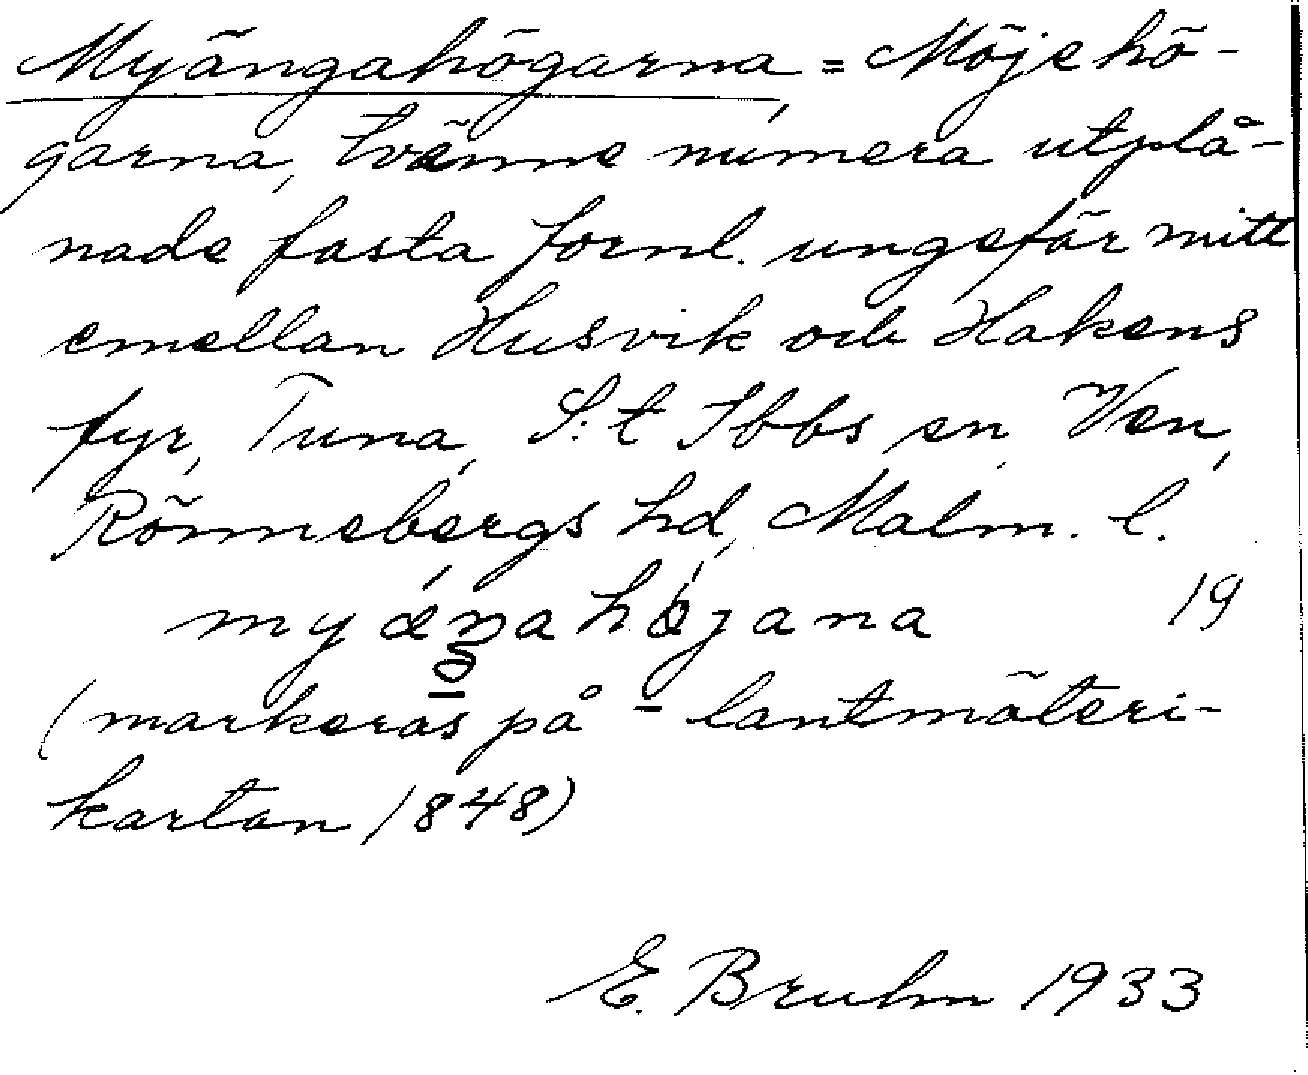 Myängahögarna, = Möjehö-
garna, tvänne numera utplå-
nade fasta fornl. ungefär mitt
emellan Husvik och Hakens
fyr, Tuna, S:t Ibbs sn, Ven,
Rönnebergs hd, Malm. l.
19
(markeras på lantmäteri-
kartan 1848)
E. Bruhn 1933